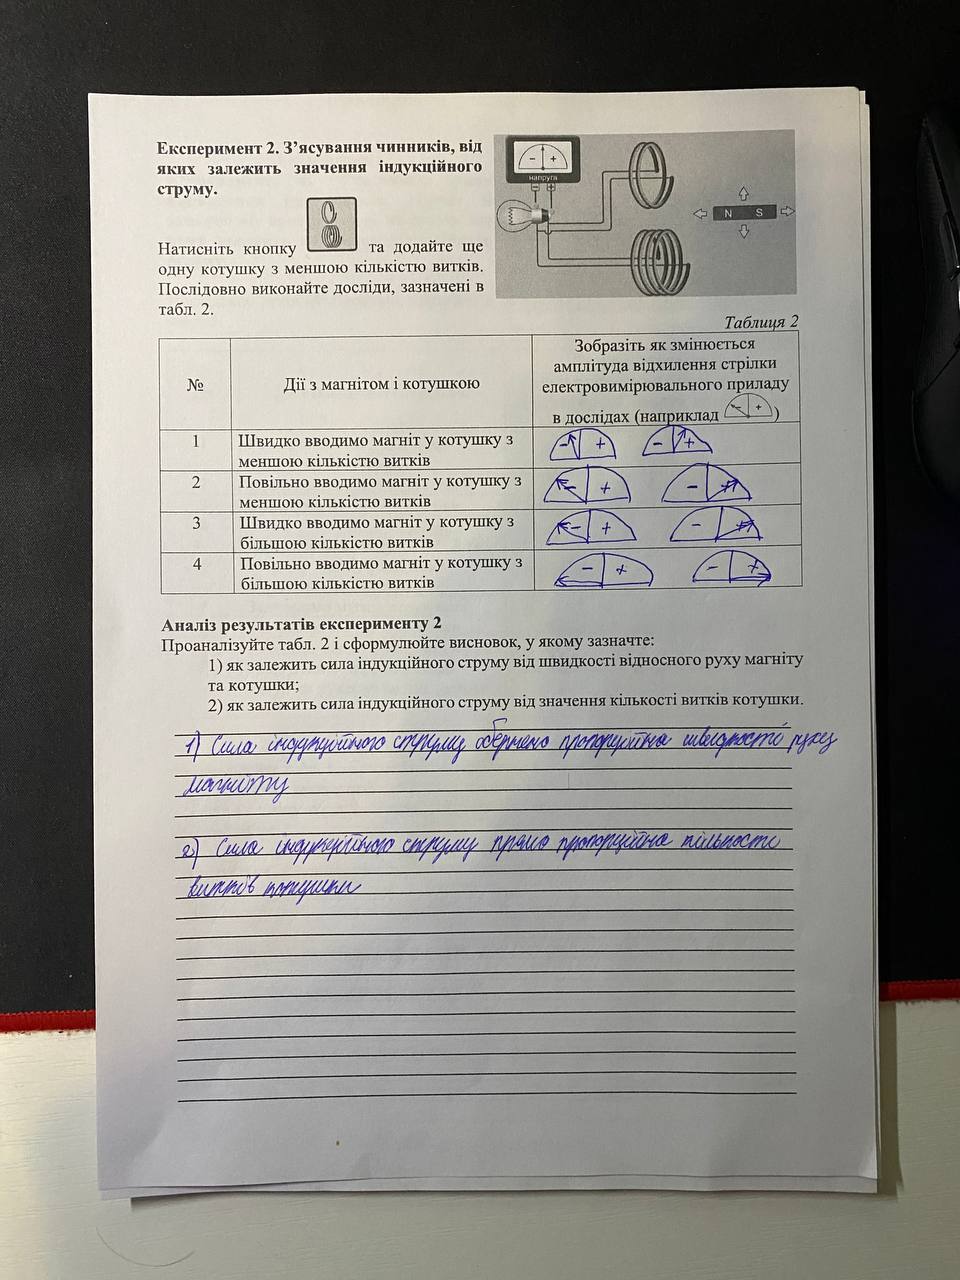 Експеримент 2. З’ясування чинників, від
яких залежить значення індукційного
струму.
Натисніть кнопку та додайте ще
одну котушку з меншою кількістю витків.
Послідовно виконайте досліди, зазначені в
табл. 2.
− +
напруга
N S
Таблиця 2
№
Дії з магнітом і котушкою
Зобразіть як змінюється
амплітуда відхилення стрілки
електровимірювального приладу
в досліdах (наприклад − + )
1 Швидко вводимо магніт у котушку з
меншою кількістю витків
− + − +
2 Повільно вводимо магніт у котушку з
меншою кількістю витків
− + − +
3 Швидко вводимо магніт у котушку з
більшою кількістю витків
− + − +
4 Повільно вводимо магніт у котушку з
більшою кількістю витків
− + − +
Аналіз результатів експерименту 2
Проаналізуйте табл. 2 і сформулюйте висновок, у якому зазначте:
1) як залежить сила індукційного струму від швидкості відносного руху магніту
та котушки;
2) як залежить сила індукційного струму від значення кількості витків котушки.
1) Сила індукційного струму обернено пропорційна швидкості руху
магніту
2) Сила індукційного струму прямо пропорційна кількості
витків котушки